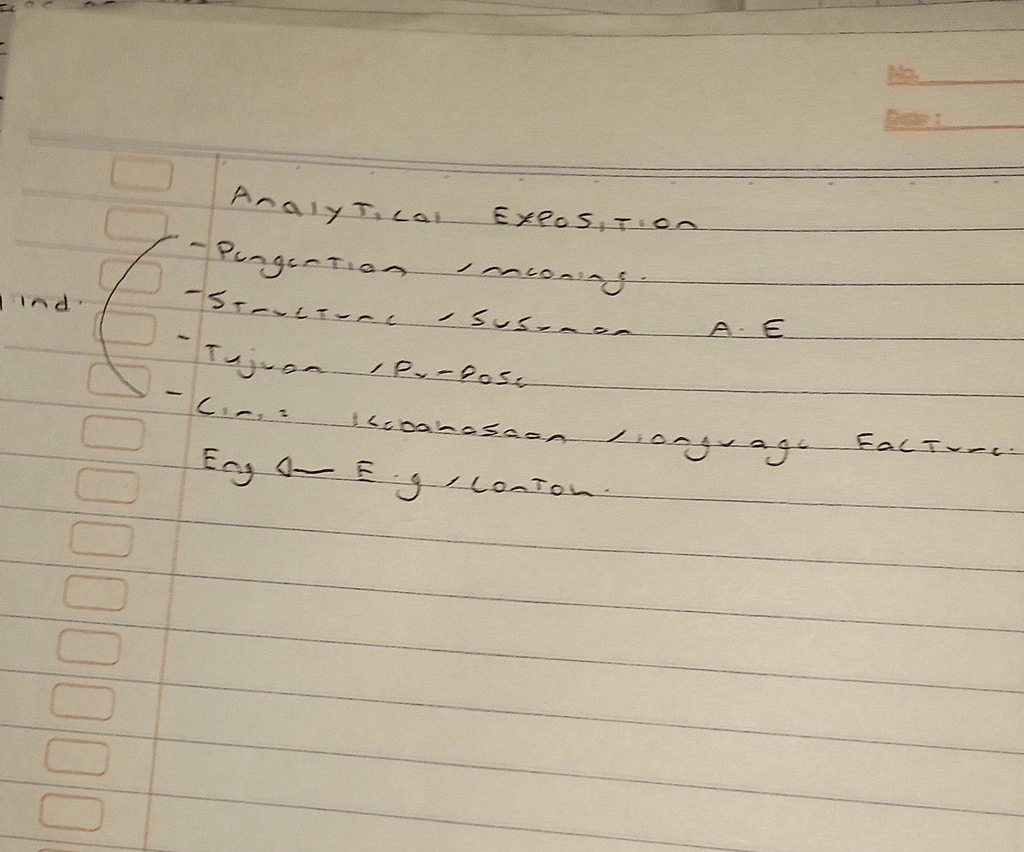 No.
Date :
Analytical Exposition
- Pengertian / meaning.
ind.
- Structure / Susunan A. E
- Tujuan / Purpose
- Ciri2 Kebahasaan / language Facture.
Eng ← E.g / Contoh.